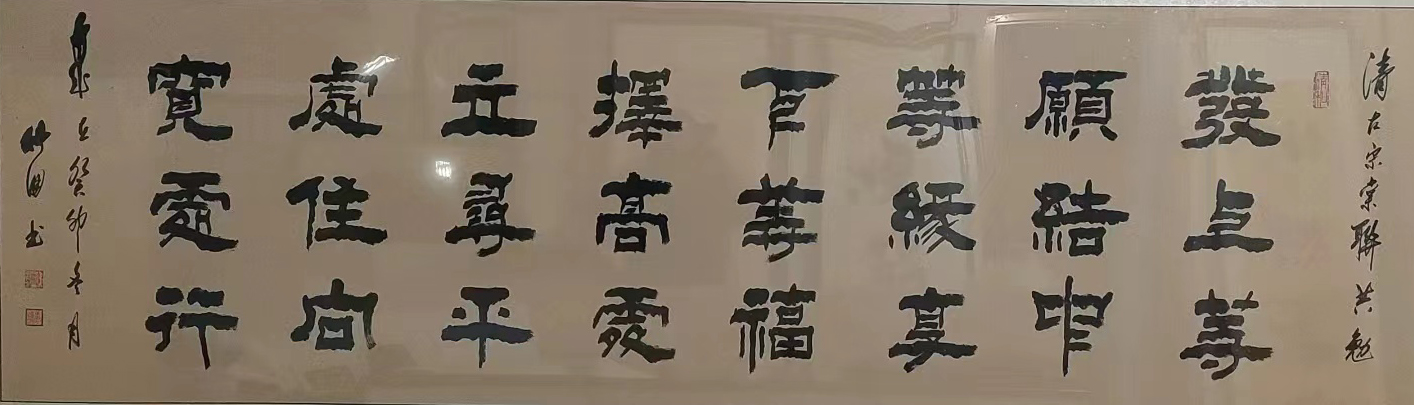 清左宗棠聯共勉
發上等
願結中
等緣享
下等福
擇高處
立尋平
處住向
寬處行
歲在癸卯冬月
書